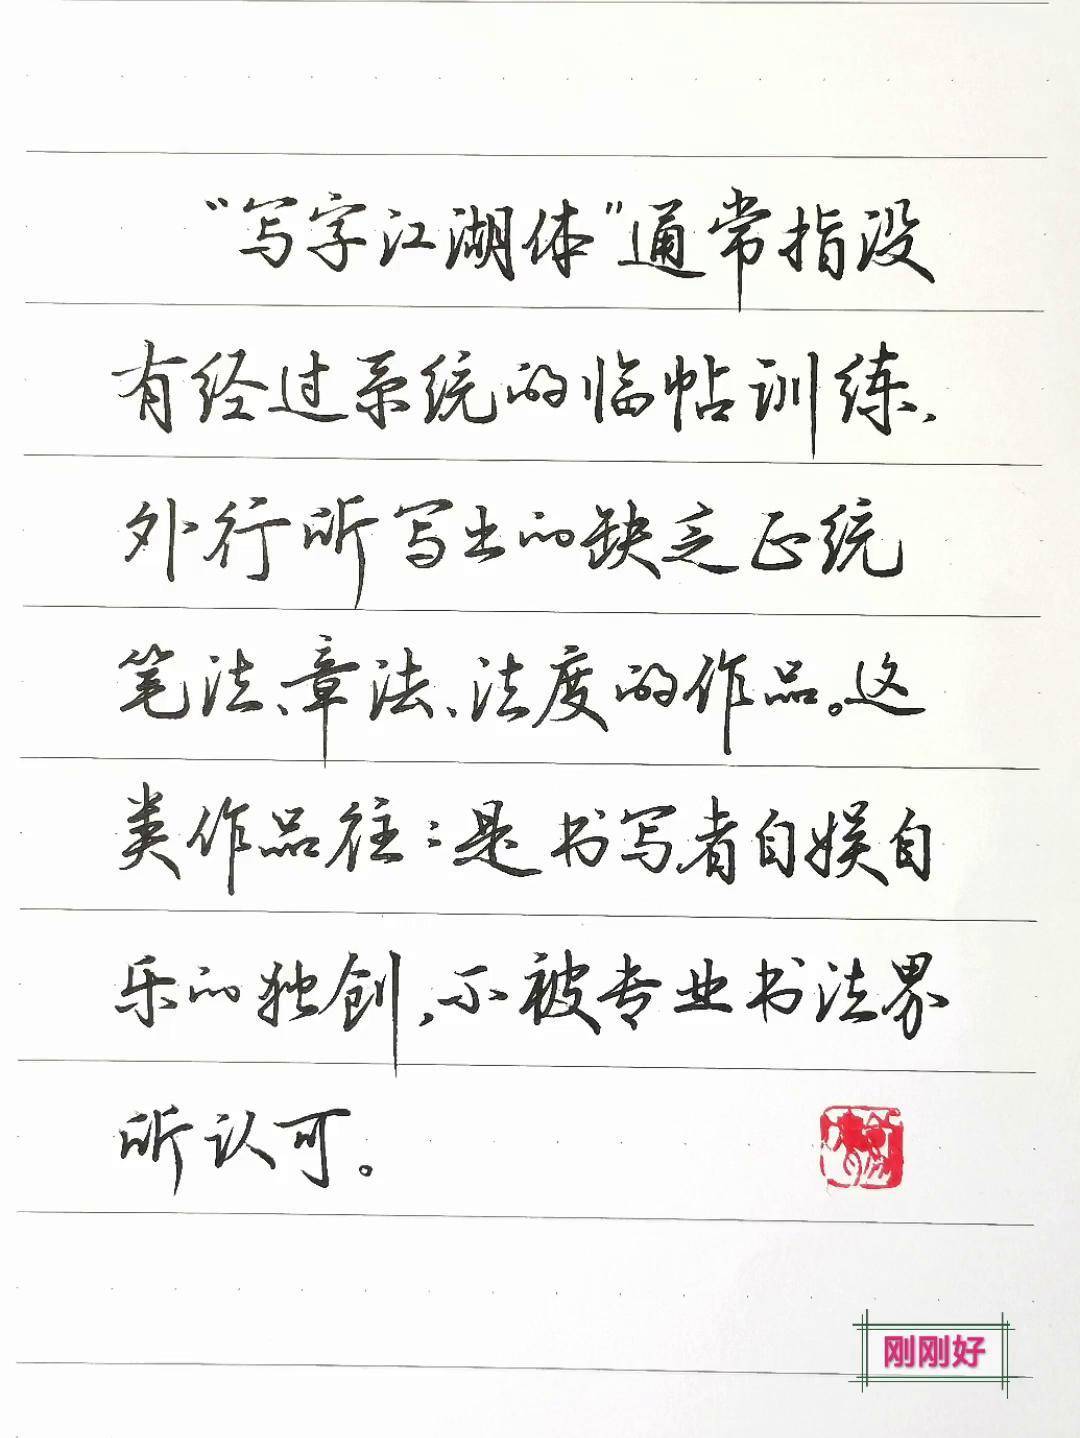 “写字江湖体”通常指没
有经过系统的临帖训练,
外行所写出的缺乏正统
笔法、章法、法度的作品。这
类作品往:是书写者自娱自
乐的独创,不被专业书法界
所认可。
刚刚好